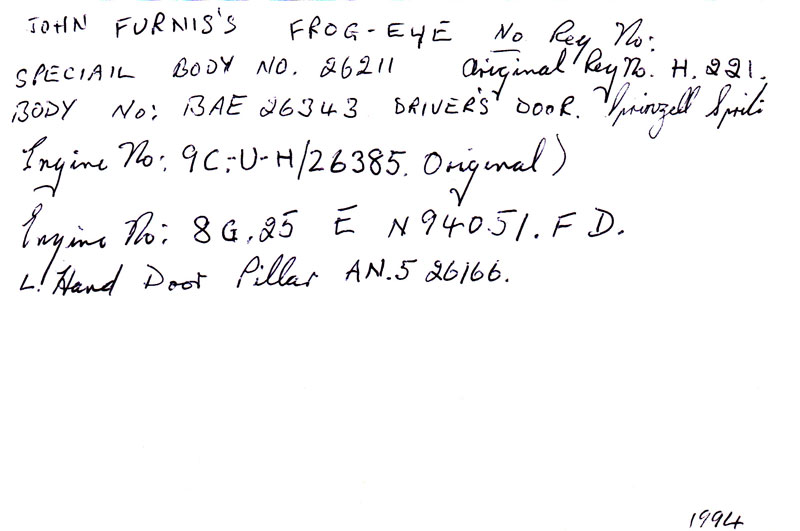 JOHN FURNIS'S FROG-EYE No Reg No:
SPECIAIL BODY NO. 26211 Original Reg No. H. 221.
BODY No: BAE 26343 DRIVER'S DOOR.
Engine No: 9C.-U-H/26385. Original)
Engine No: 8G.25 E N94051. F D.
L. Hand Door Pillar AN.5 26166.
1994